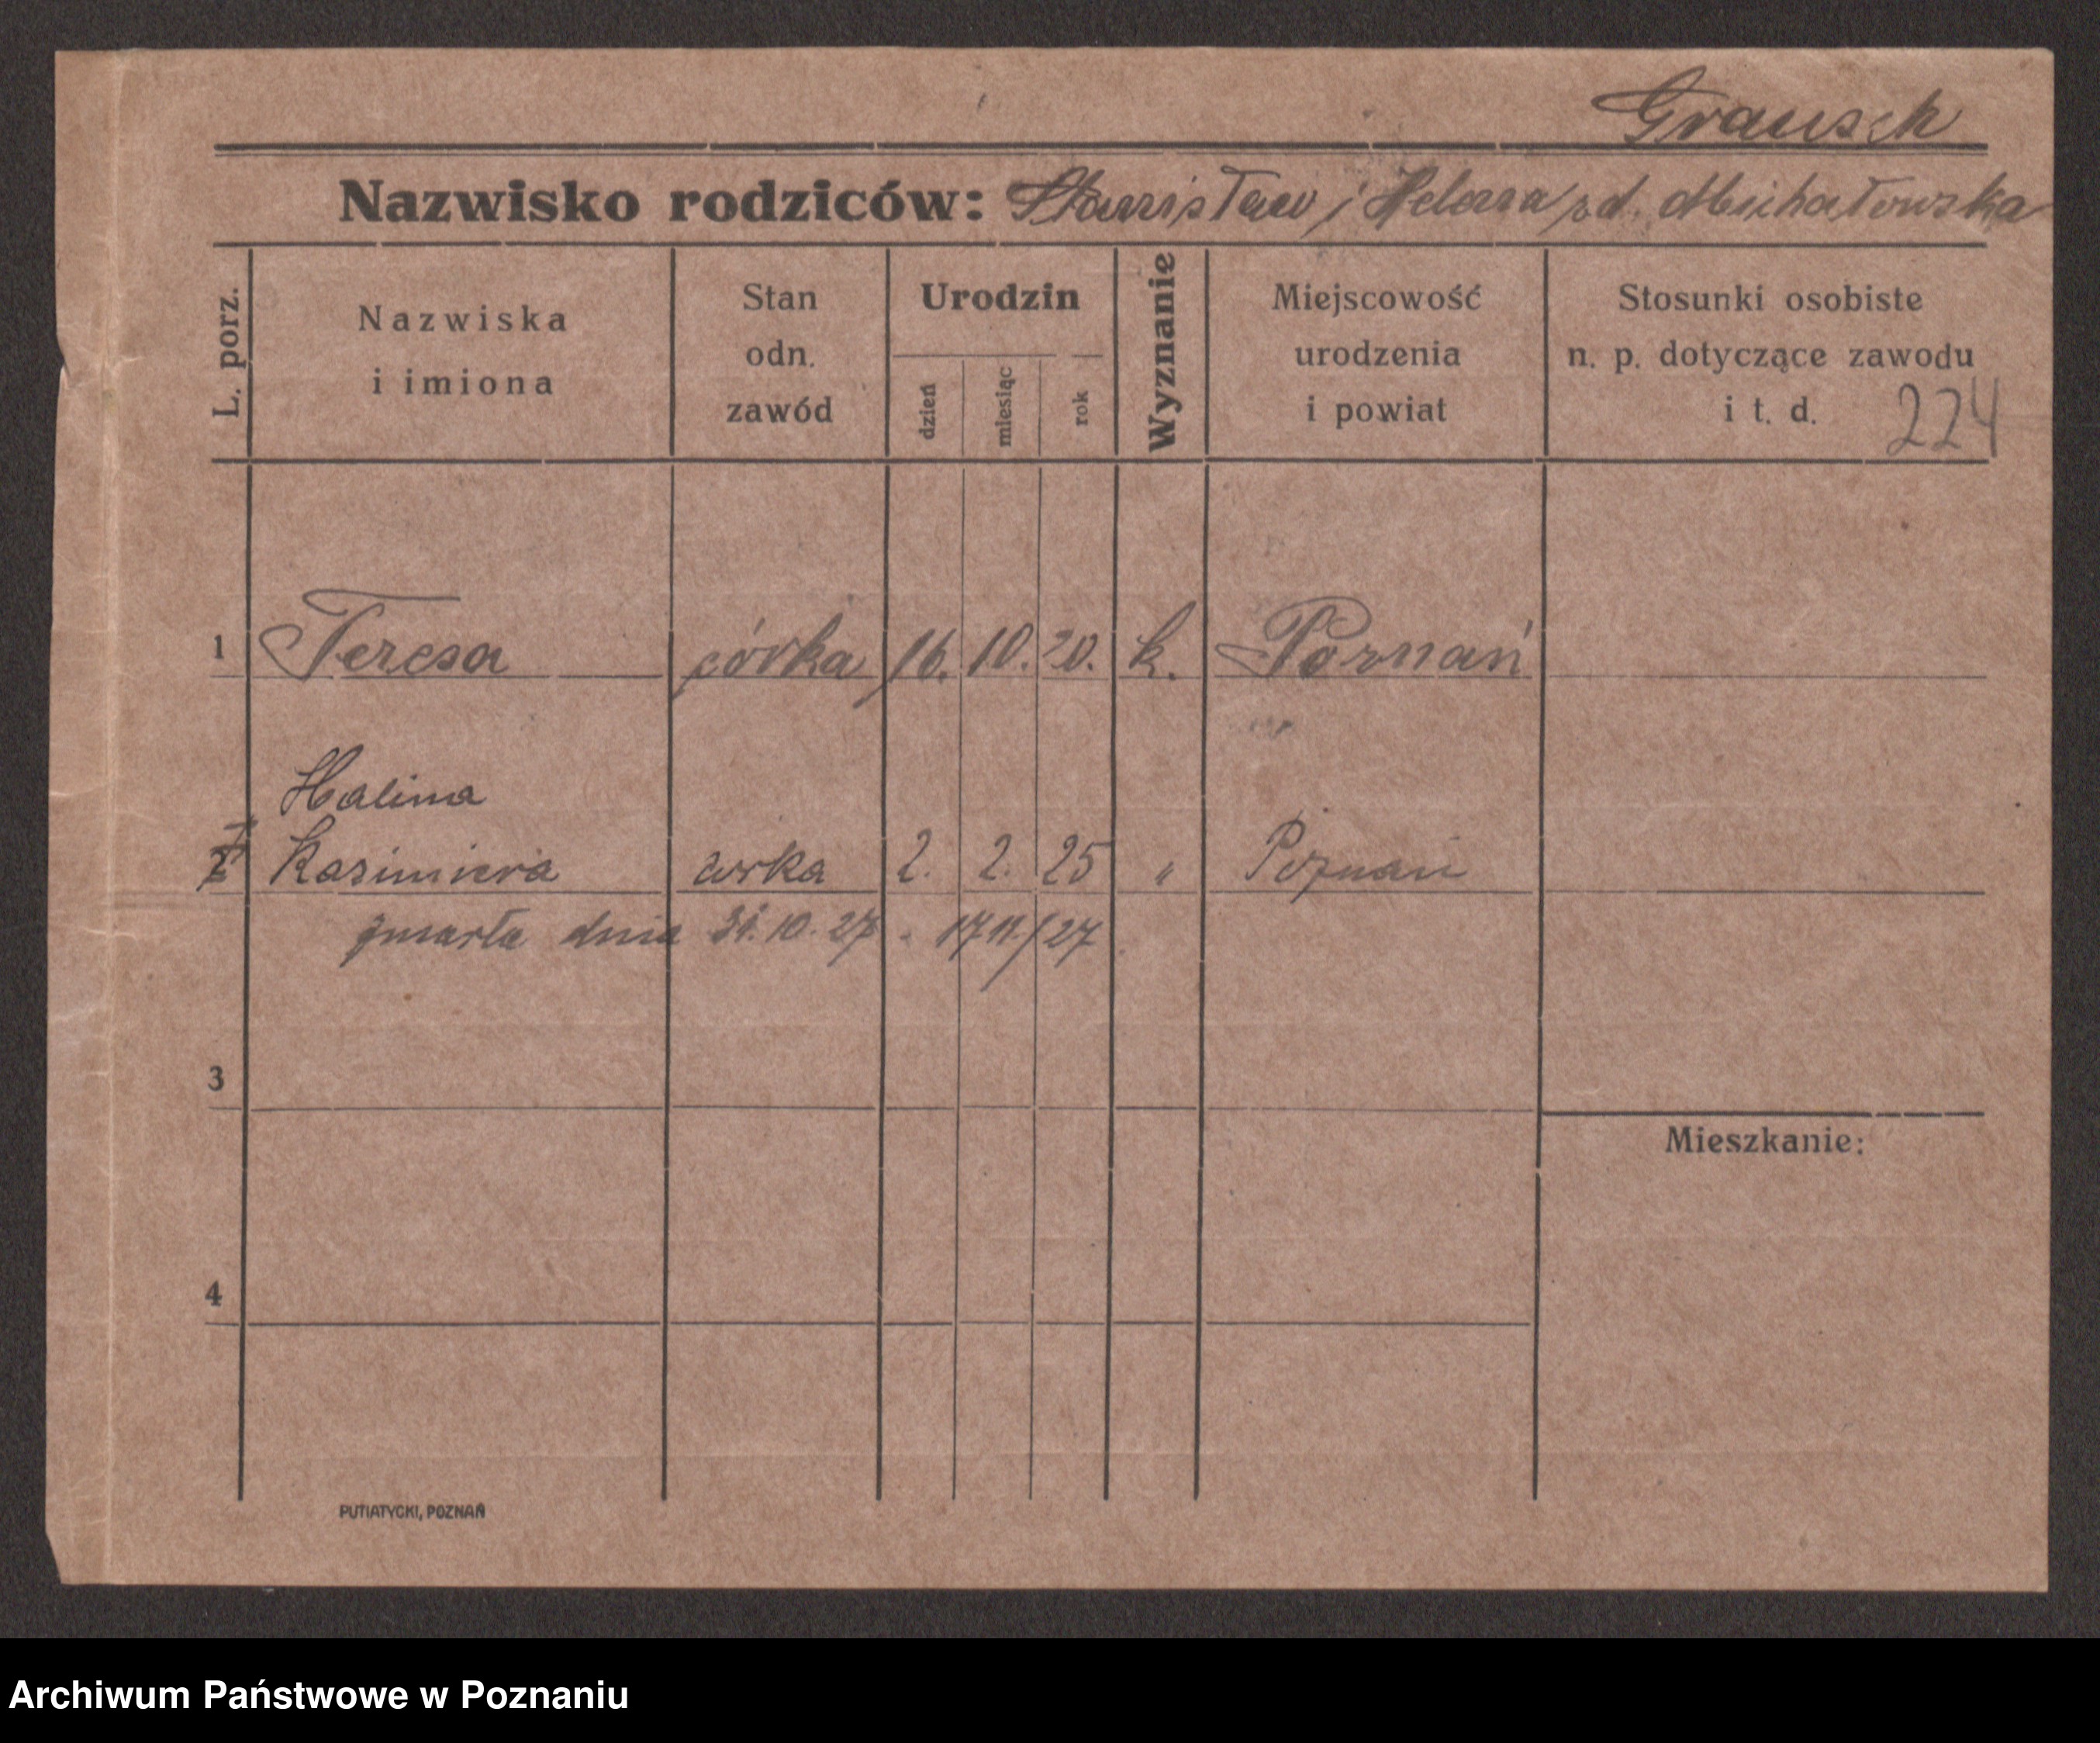 Grausch
Nazwisko rodziców: Stanisław i Helena z d. Michałowska
L. porz.
Nazwiska
i imiona
Stan
odn.
zawód
Urodzin
dzień
miesiąc
rok
Wyznanie
Miejscowość
urodzenia
i powiat
Stosunki osobiste
n. p. dotyczące zawodu
i t. d.
224
1 Teresa córka 16. 10. 20. k. Poznań
Halina
2 Kazimiera córka 2. 2. 25 " Poznań
zmarła dnia 31. 10. 27. 17 11./27
3
Mieszkanie:
4
PUTIATYCKI, POZNAŃ
Archiwum Państwowe w Poznaniu